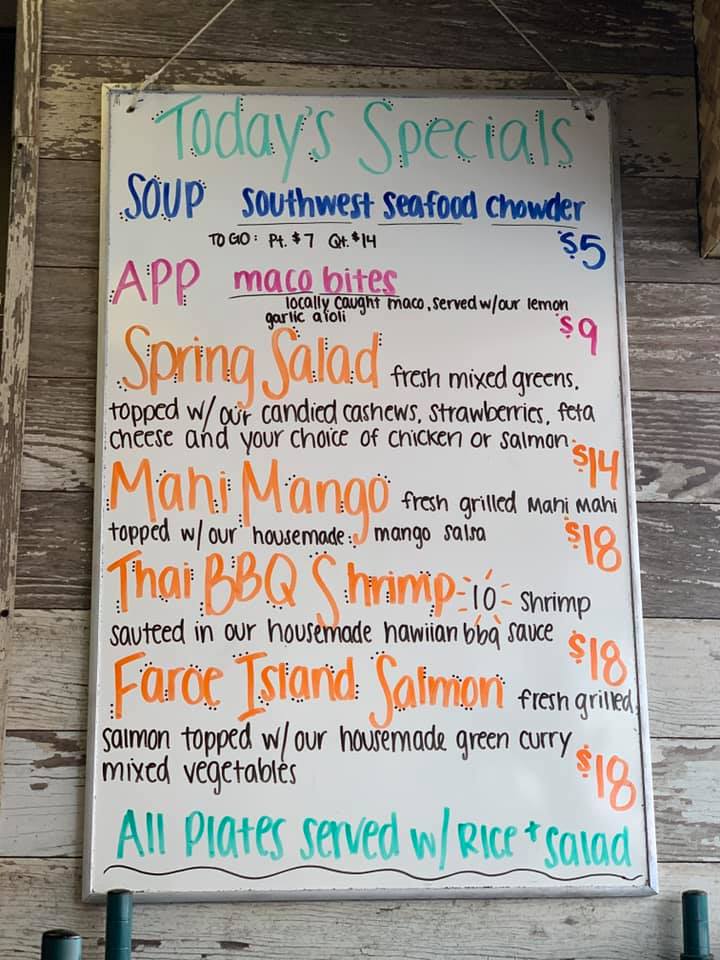 Today's Specials
SOUP southwest seafood chowder
TO GO: Pt. $7 Qt. $14 $5
APP maco bites
locally caught maco, served w/our lemon
garlic aioli $9
Spring Salad fresh mixed greens,
topped w/ our candied cashews, strawberries, feta
cheese and your choice of chicken or salmon. $14
Mahi Mango fresh grilled Mahi Mahi
topped w/our housemade mango salsa $18
Thai BBQ Shrimp - 10 - shrimp
sauteed in our housemade hawiian bbq sauce $18
Faroe Island Salmon fresh grilled
salmon topped w/our housemade green curry
mixed vegetables $18
All Plates served w/ Rice + salad